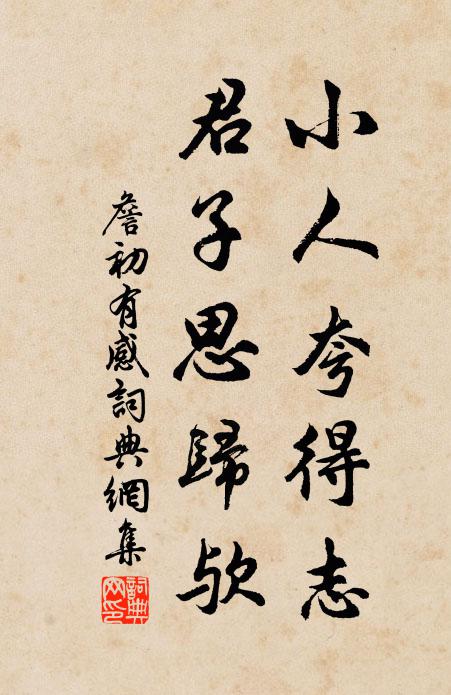 小人夸得志
君子思歸欤
詹初有感詞典網集
詞典网印